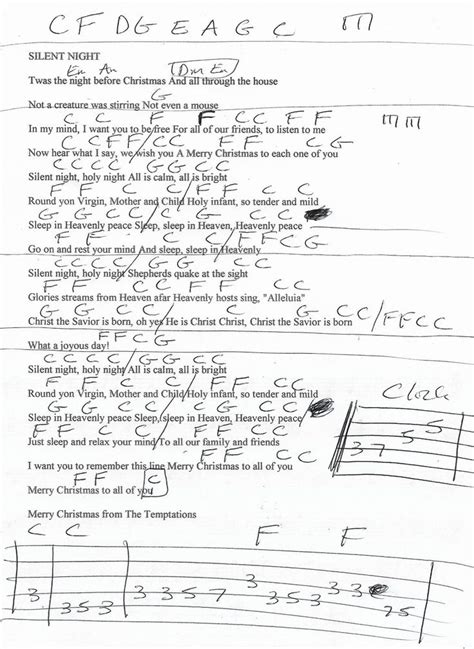 C F DG E A G C m
SILENT NIGHT
Em Am (Dm Em)
Twas the night before Christmas And all through the house
G
Not a creature was stirring Not even a mouse
C C F F CC FF m m
In my mind, I want you to be free For all of our friends, to listen to me
C C F F / C C F F C G
Now hear what I say, we wish you A Merry Christmas to each one of you
C C C C G G C C
Silent night, holy night All is calm, all is bright
F F C C / F F C C
Round yon Virgin, Mother and Child Holy infant, so tender and mild
G G C C / C G C C
Sleep in Heavenly peace Sleep, sleep in Heaven, Heavenly peace
F F C / F F C G
Go on and rest your mind And sleep, sleep in Heavenly
C C C C / G G C C
Silent night, holy night Shepherds quake at the sight
F F C C F F C C
Glories streams from Heaven afar Heavenly hosts sing, "Alleluia"
G G C C C G C C / F F C C
Christ the Savior is born, oh yes He is Christ Christ, Christ the Savior is born
F F C G
What a joyous day!
C C C C / G G C C
Silent night, holy night All is calm, all is bright
F F C C F F C C
Round yon Virgin, Mother and Child Holy infant, so tender and mild
G G C C C G C C
Sleep in Heavenly peace Sleep, sleep in Heaven, Heavenly peace
F F C C F F C C
Just sleep and relax your mind To all our family and friends
F F C C F F C C
I want you to remember this line Merry Christmas to all of you
F F C
Merry Christmas to all of you
3 7 5 5
Merry Christmas from The Temptations
C C F F
3 3 5 3 3 3 5 7 3 3 5 3 3 3 7 5